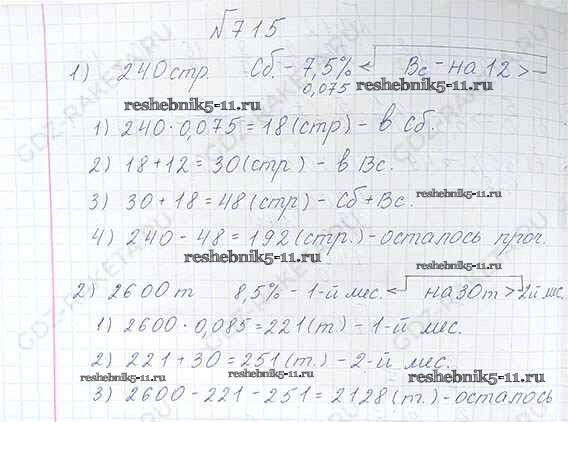 №715
1) 240 стр. Сб. - 7,5% Вс - на 12 >
0,075
reshebnik5-11.ru
reshebnik5-11.ru
1) 240 · 0,075 = 18 (стр) - в Сб.
2) 18 + 12 = 30 (стр) - в Вс.
3) 30 + 18 = 48 (стр) - Сб + Вс.
reshebnik5-11.ru
4) 240 - 48 = 192 (стр.) - осталось проч.
reshebnik5-11.ru
2) 2600 т 8,5% - 1-й мес. на 30 т > - 2й мес.
reshebnik5-11.ru
1) 2600 · 0,085 = 221 (т) - 1-й мес.
2) 221 + 30 = 251 (т.) - 2-й мес.
reshebnik5-11.ru
reshebnik5-11.ru
reshebnik5-11.ru
3) 2600 - 221 - 251 = 2128 (т.) - осталось
GDZ-RAKETA.RU